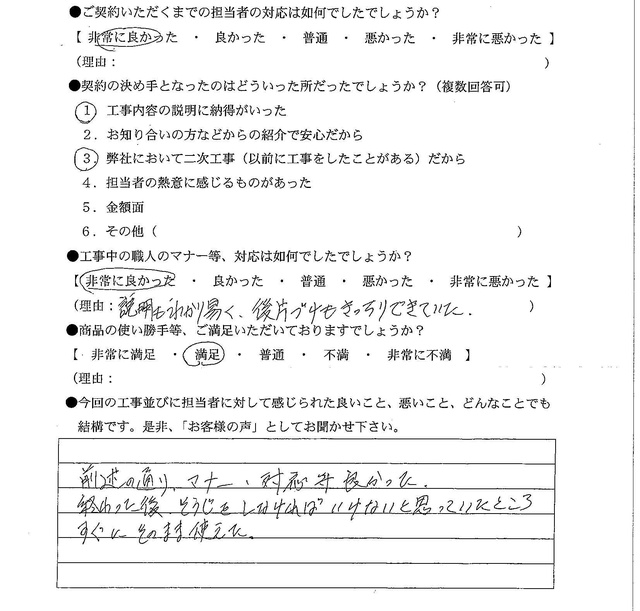 ●ご契約いただくまでの担当者の対応は如何でしたでしょうか？
【 非常に良かった ・ 良かった ・ 普通 ・ 悪かった ・ 非常に悪かった 】
（理由： ）
●契約の決め手となったのはどういった所だったでしょうか？（複数回答可）
１ 工事内容の説明に納得がいった
２．お知り合いの方などからの紹介で安心だから
３．弊社において二次工事（以前に工事をしたことがある）だから
４．担当者の熱意に感じるものがあった
５．金額面
６．その他（ ）
●工事中の職人のマナー等、対応は如何でしたでしょうか？
【 非常に良かった ・ 良かった ・ 普通 ・ 悪かった ・ 非常に悪かった 】
（理由：説明もわかり易く、後片づけもきっちりできていた． ）
●商品の使い勝手等、ご満足いただいておりますでしょうか？
【 非常に満足 ・ 満足 ・ 普通 ・ 不満 ・ 非常に不満 】
（理由： ）
●今回の工事並びに担当者に対して感じられた良いこと、悪いこと、どんなことでも
結構です。是非、「お客様の声」としてお聞かせ下さい。
前述の通り、マナー、対応等良かった．
終わった後、そうじをしなければいけないと思っていたところ
すぐにそのまま使えた．